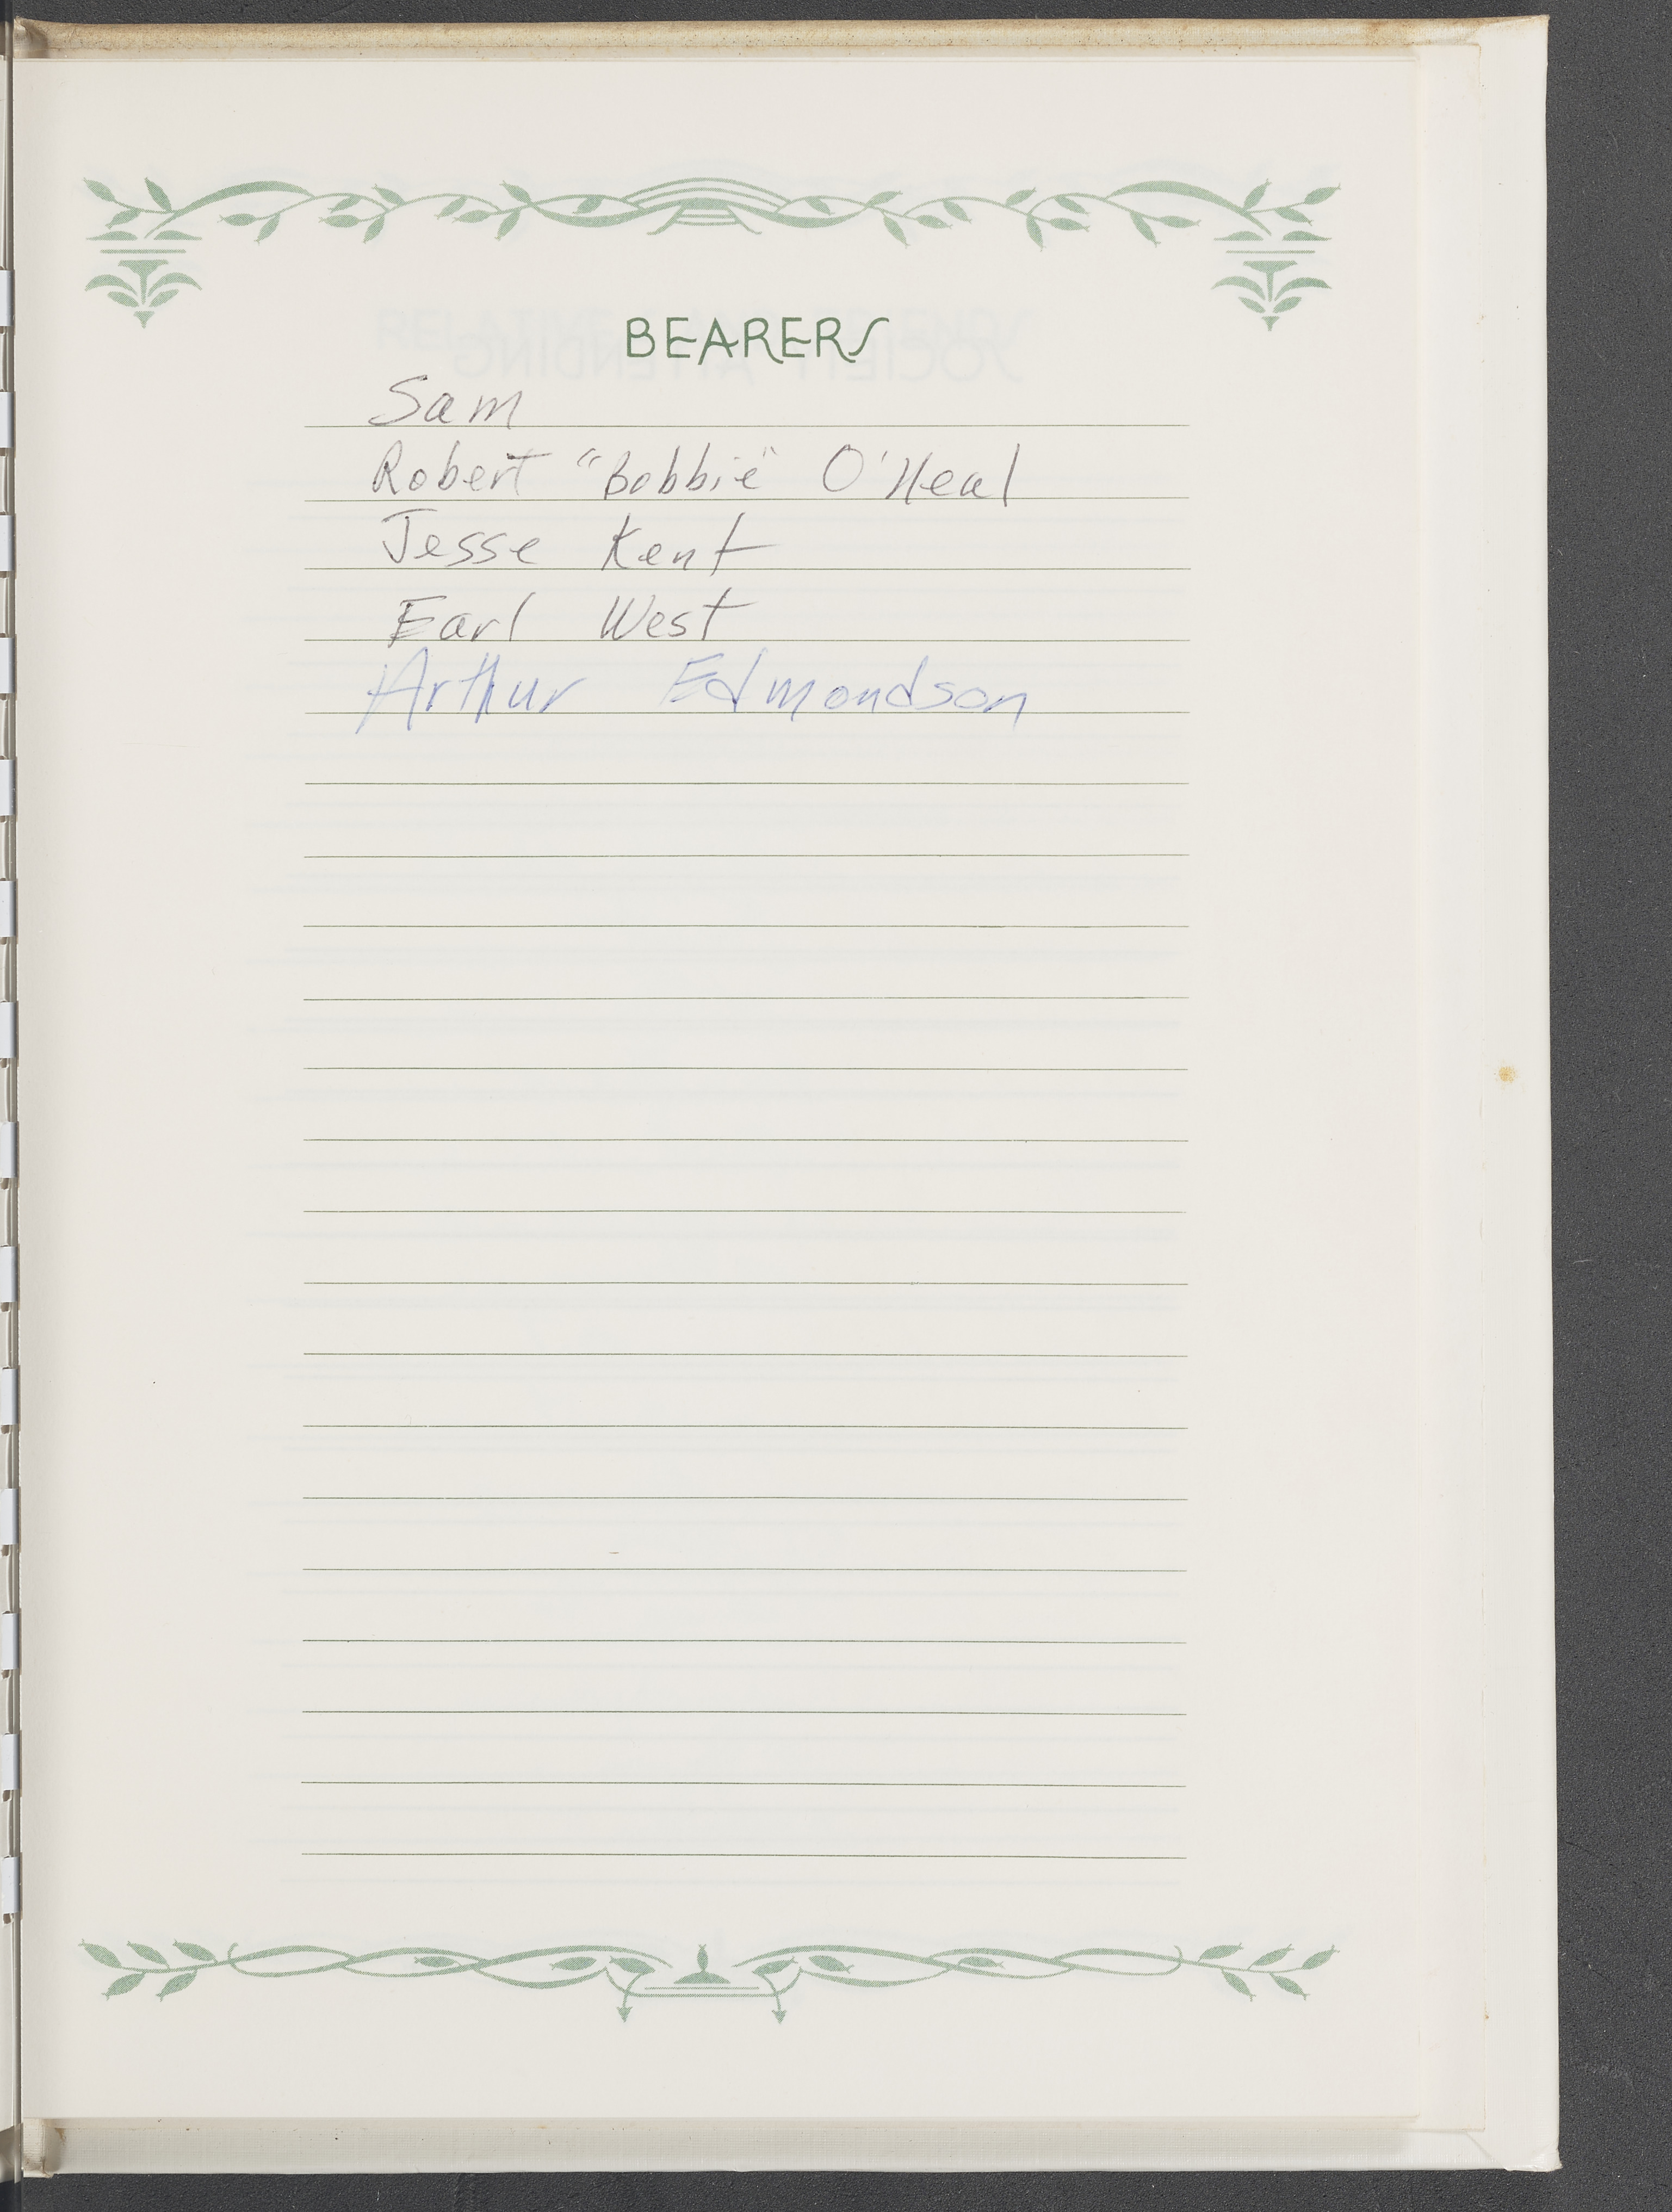 BEARERS
Sam
Robert "Bobbie" O'Neal
Jesse Kent
Earl West
Arthur Edmondson